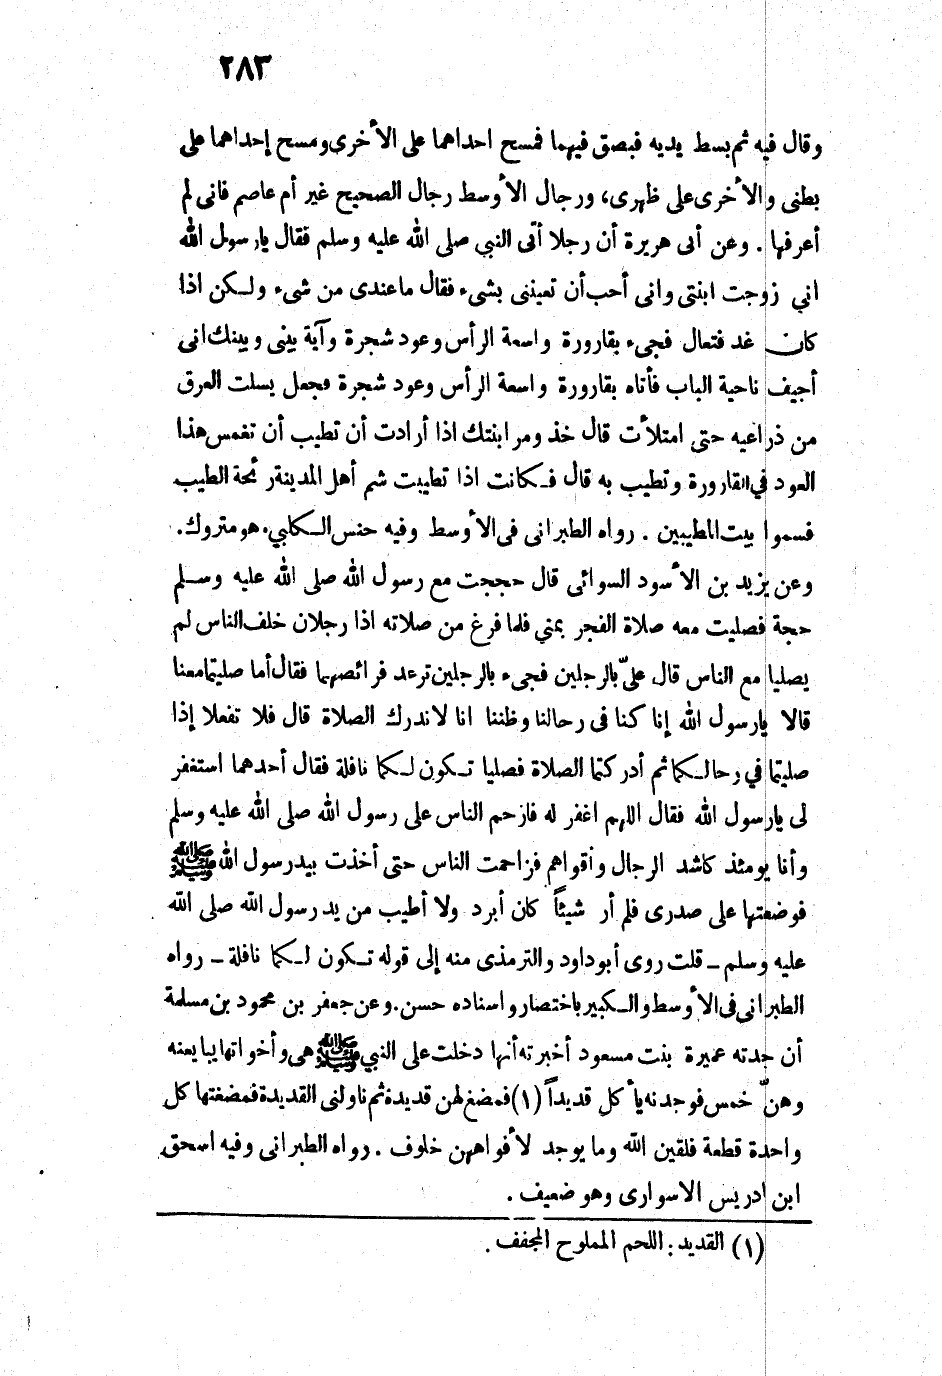 ٢٨٣
وقال فيه ثم بسط يديه فبصق فيهما فمسح احداهما على الأخرى ومسح إحداهما على
بطنى والأخرى على ظهرى، ورجال الأوسط رجال الصحيح غير أم عاصم فانى لم
أعرفها . وعن أبى هريرة أن رجلا أتى النبي صلى الله عليه وسلم فقال يارسول الله
انى زوجت ابنتى وانى أحب أن تعيننى بشىء فقال ماعندى من شىء ولكن اذا
كان غد فتعال فجىء بقارورة واسعة الرأس وعود شجرة وآية بينى وبينك انى
أجيف ناحية الباب فأتاه بقارورة واسعة الرأس وعود شجرة فجعل يسلت العرق
من ذراعيه حتى امتلأت قال خذ ومر ابنتك اذا أرادت أن تطيب أن تغمس هذا
العود في القارورة وتطيب به قال فكانت اذا تطيبت شم أهل المدينة رئحة الطيب
فسموا بيت المطيبين . رواه الطبرانى فى الأوسط وفيه حنس الكلبي وهو متروك.
وعن يزيد بن الأسود السوائى قال حججت مع رسول الله صلى الله عليه وسلم
حجة فصليت معه صلاة الفجر بمني فلما فرغ من صلاته اذا رجلان خلف الناس لم
يصليا مع الناس قال علىّ بالرجلين فجىء بالرجلين ترعد فرائصهما فقال أما صليتما معنا
قالا يارسول الله إنا كنا فى رحالنا وظننا انا لاندرك الصلاة قال فلا تفعلا إذا
صليتما في رحالكما ثم أدركتما الصلاة فصليا تكون لكما نافلة فقال أحدهما استغفر
لى يارسول الله فقال اللهم اغفر له فازحم الناس على رسول الله صلى الله عليه وسلم
وأنا يومئذ كاشد الرجال وأقواهم فزاحمت الناس حتى أخذت بيد رسول الله ﷺ
فوضعتها على صدرى فلم أر شيئاً كان أبرد ولا أطيب من يد رسول الله صلى الله
عليه وسلم ــ قلت روى أبو داود والترمذى منه إلى قوله تكون لكما نافلة ــ رواه
الطبرانى فى الأوسط والكبير باختصار واسناده حسن. وعن جعفر بن محمود بن مسلمة
أن جدته عميرة بنت مسعود أخبرته أنها دخلت على النبي ﷺ هى وأخواتها يبايعنه
وهنّ خمس فوجدنه يأكل قديداً (١) فمضغ لهن قديدة ثم ناولنى القديدة فمضغتها كل
واحدة قطعة فلقين الله وما يوجد لأفواههن خلوف . رواه الطبرانى وفيه اسحق
ابن ادريس الاسوارى وهو ضعيف .
(١) القديد : اللحم المملوح المجفف .